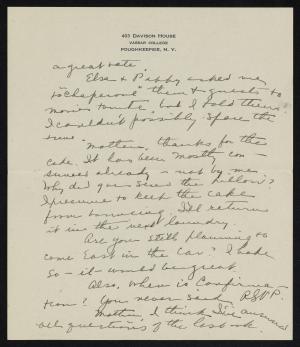 403 DAVISON HOUSE
VASSAR COLLEGE
POUGHKEEPSIE, N. Y.
a great rate.
Else & Pippy asked me
to "chaperone" them & guests to
movies tonite, but I told them
I couldn't possibly spare the
time.
Mother, thanks for the
cake. It has been mostly con-
sumed already – not by me.
Why did you send the pillow?
I presume to keep the cake
from bouncing. I'll return
it in the next laundry.
Are you still planning to
come East in the car? I hope
so – it would be great.
Also, when is Confirma-
tion? You never said. R.S.V.P.
Mother, I think I've answered
all questions of the last week.